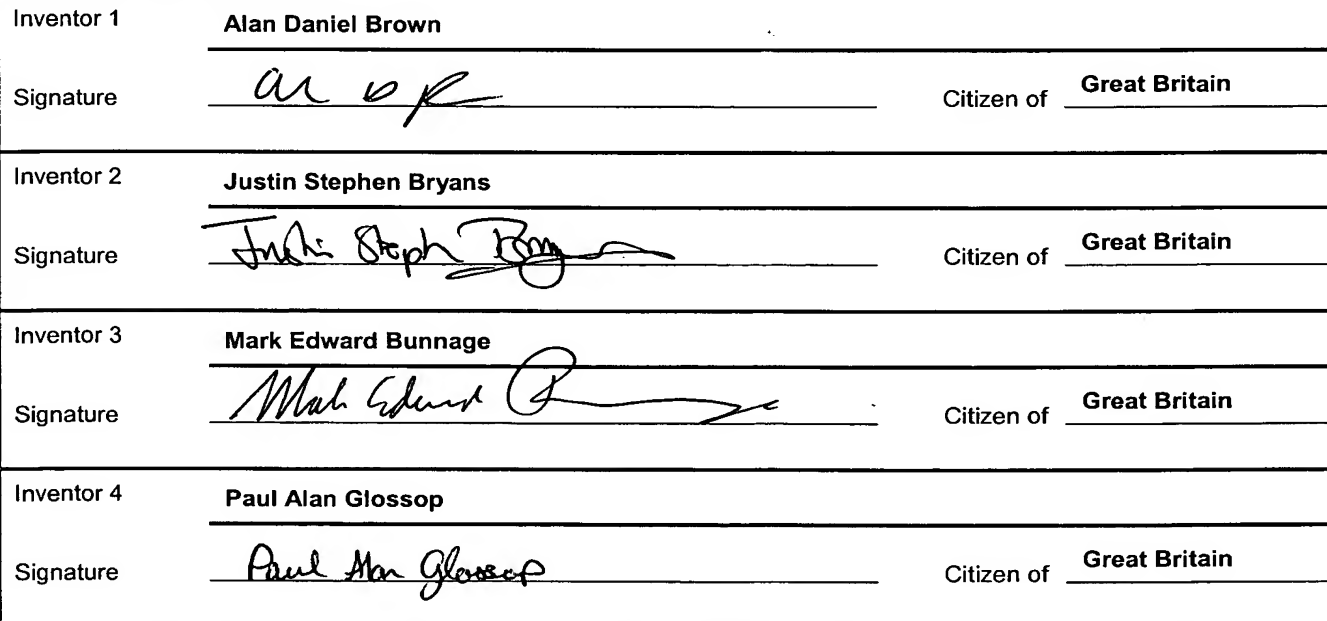 Inventor 1 Alan Daniel Brown
Signature Citizen of Great Britain
Inventor 2 Justin Stephen Bryans
Signature Justin Steph Citizen of Great Britain
Inventor 3 Mark Edward Bunnage
Signature Mark Edward Citizen of Great Britain
Inventor 4 Paul Alan Glossop
Signature Paul Alan Glossop Citizen of Great Britain